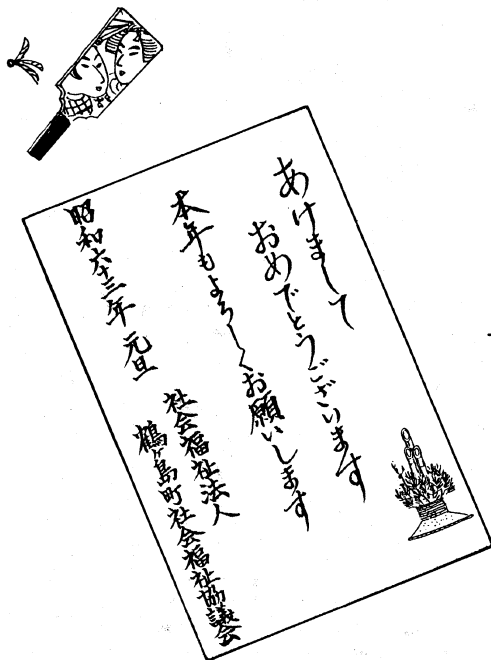 あけまして
おめでとうございます
本年もよろしくお願いします
昭和六十三年 元旦
社会福祉法人
鶴ヶ島町社会福祉協議会